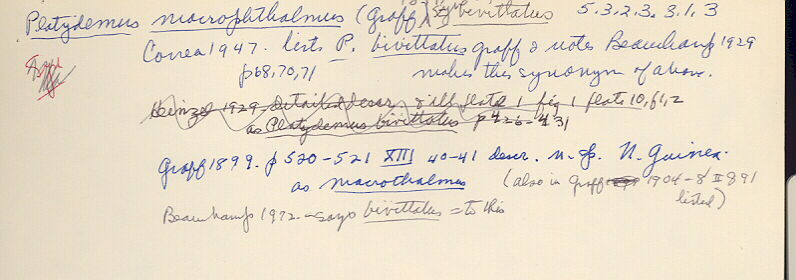 Platydemus macrophthalmus (Graff) syn bivittatus 5.3.2.3.3.1.3
Correa 1947. lists P. bivittatus Graff & notes Beauchamp 1929
p68,70,71 makes this synonym of above.
Heinzel 1929. Detailed descr. & ill plate 1 fig 1 plate 10, 61,2
as Platydemus bivittatus p 426-431
Graff 1899. p 520-521 XIII 40-41 descr. n. sp. N. Guinea.
as macrothalmus (also in Graff 1904-8 II 891
listed)
Beauchamp 1972 - says bivittatus = to this